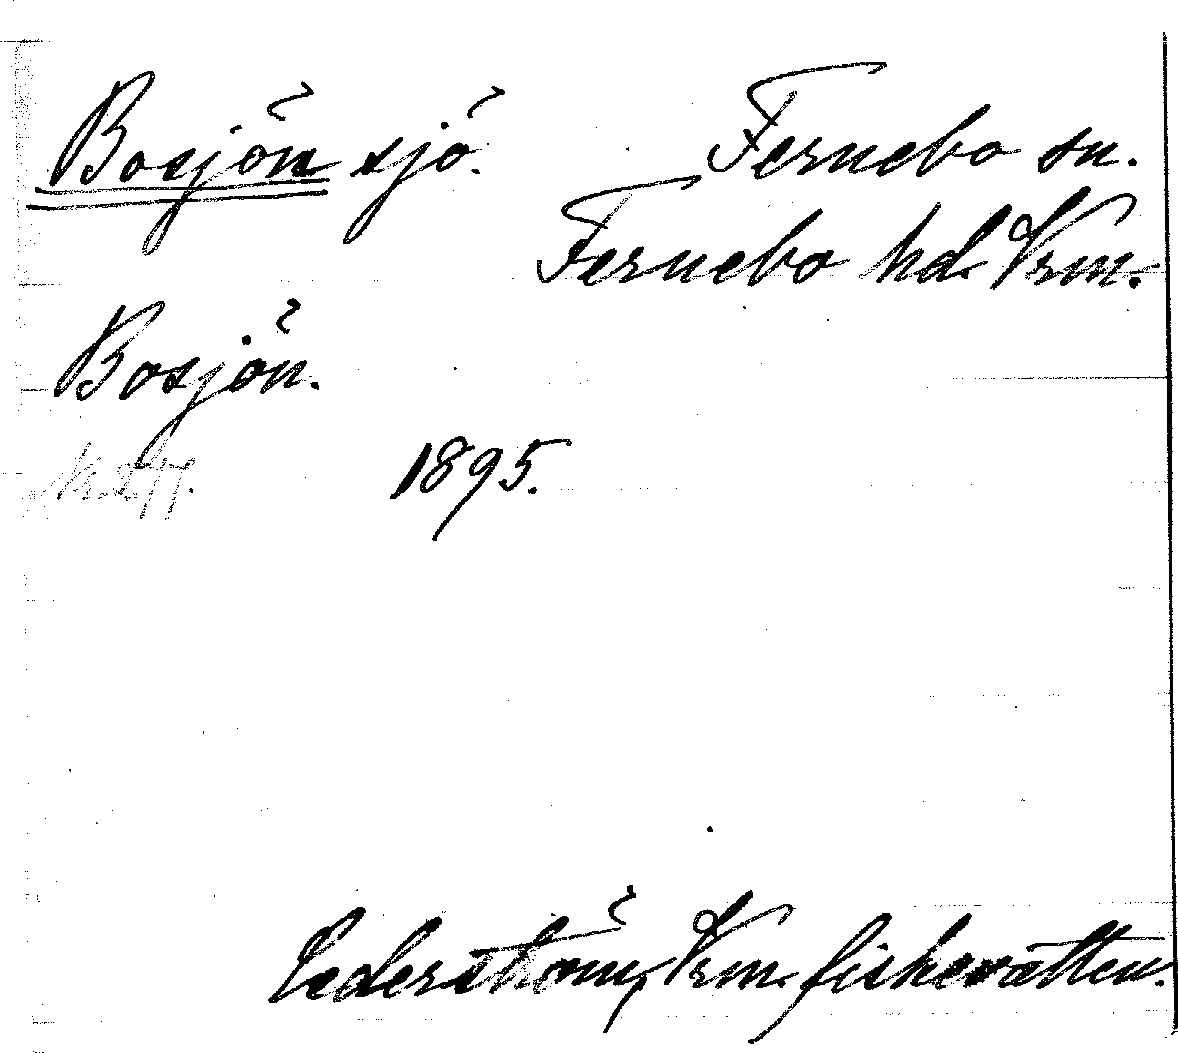 Bosjön sjö. Fernebo sn.
Fernebo hd. Vrm.
Bosjön.
1895.
Cederström, Vrm. fiskevatten.